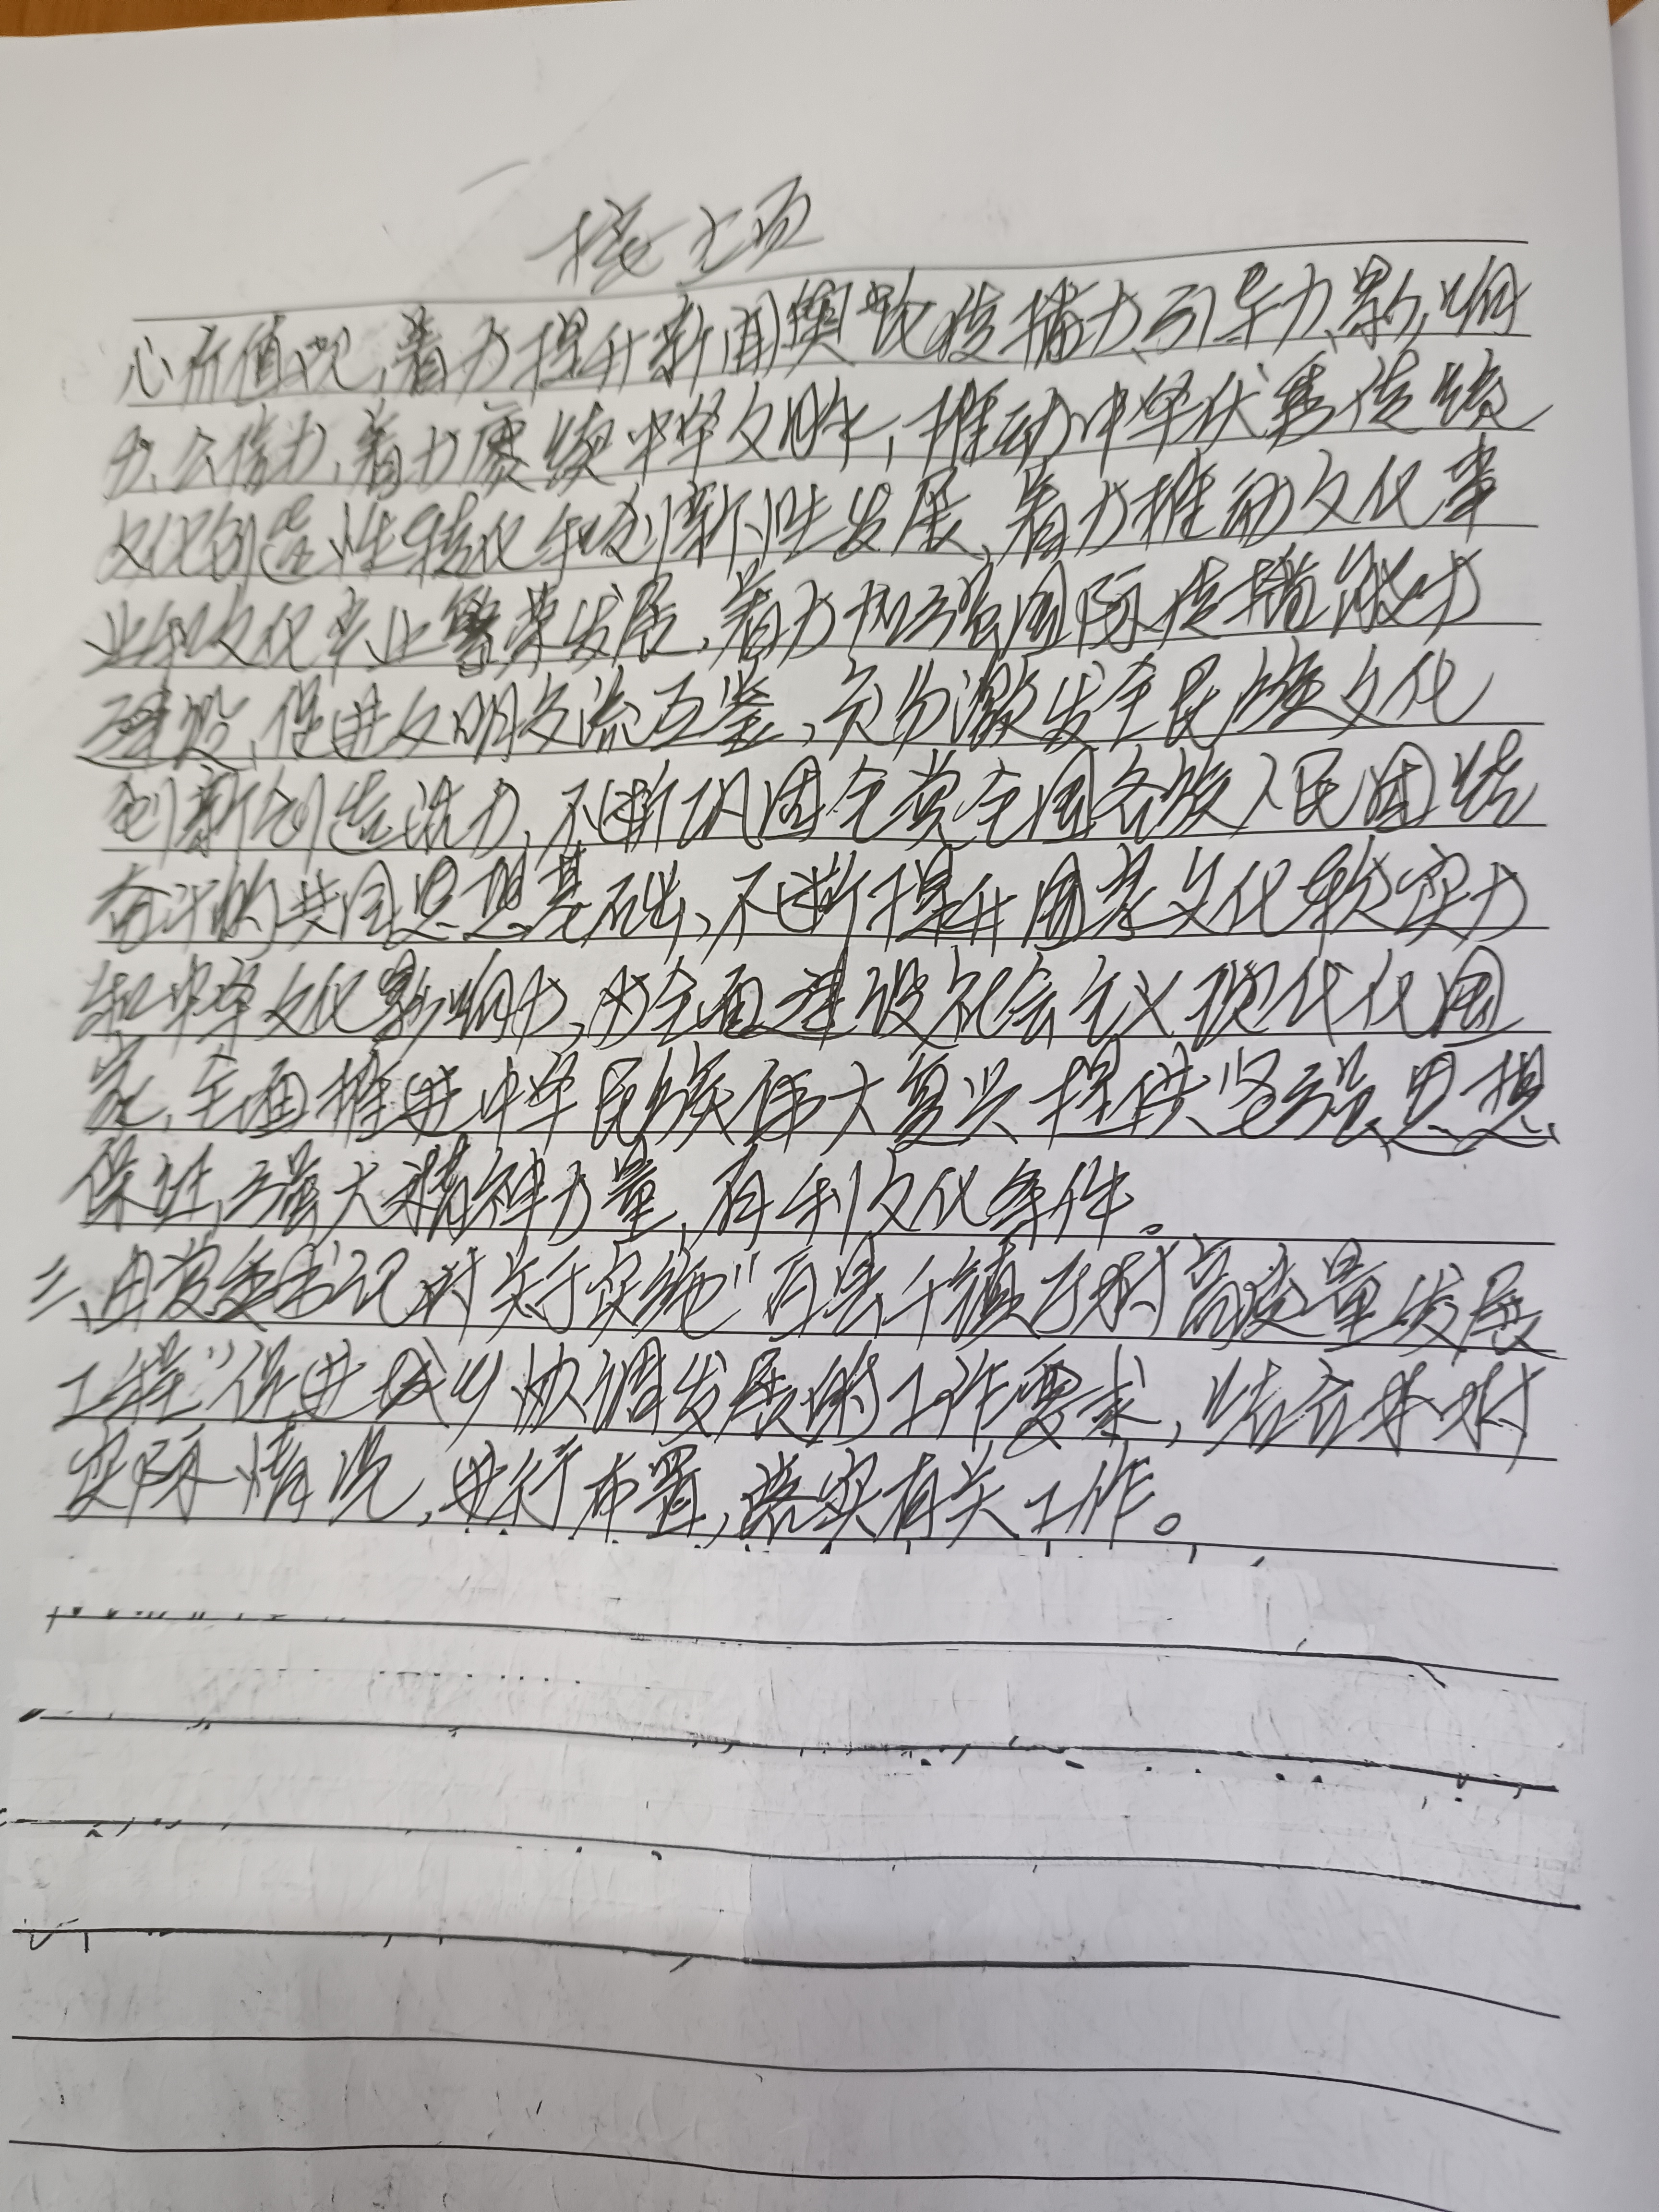 接上页
心价值观,着力提升新闻舆论传播力、引导力、影响
力、公信力,着力赓续中华文脉,推动中华优秀传统
文化创造性转化和创新性发展,着力推动文化事
业和文化产业繁荣发展,着力加强国际传播能力
建设,促进文明交流互鉴,充分激发全民族文化
创新创造活力,不断巩固全党全国各族人民团结
奋斗的共同思想基础,不断提升国家文化软实力
和中华文化影响力,为全面建设社会主义现代化国
家,全面推进中华民族伟大复兴提供坚强思想
保证,强大精神力量,有利文化条件。
三、由党委书记对关于实施“百县千镇万村高质量发展
工程”促进城乡协调发展的工作要求,结合本村
实际情况,进行布置,落实有关工作。